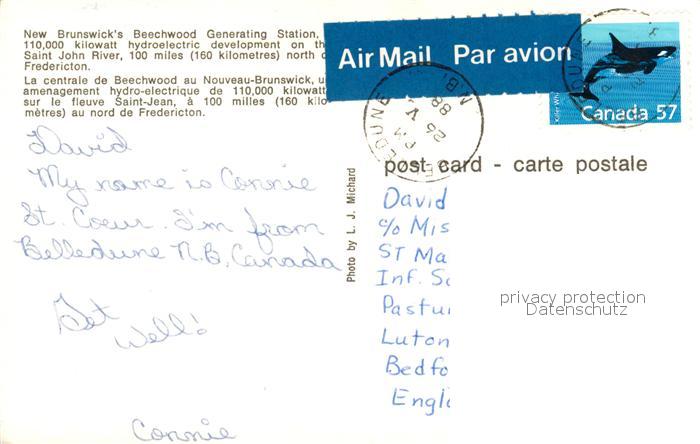 New Brunswick's Beechwood Generating Station,
110,000 kilowatt hydroelectric development on th
Saint John River, 100 miles (160 kilometres) north o
Fredericton.
La centrale de Beechwood au Nouveau-Brunswick, u
amenagement hydro-electrique de 110,000 kilowatt
sur le fleuve Saint-Jean, à 100 milles (160 kilo
mètres) au nord de Fredericton.
Air Mail Par avion
Killer Wh
Canada 57
BELLEDUNE N.B.
PM
26 V
88
post card - carte postale
Photo by L. J. Michard
David
My name is Connie
St. Coeur. I'm from
Belledune N.B. Canada
Get
Well!
Connie
David
c/o Mis
ST Ma
Inf. Sc
Pastu
Luton
Bedfo
Engl
privacy protection
Datenschutz